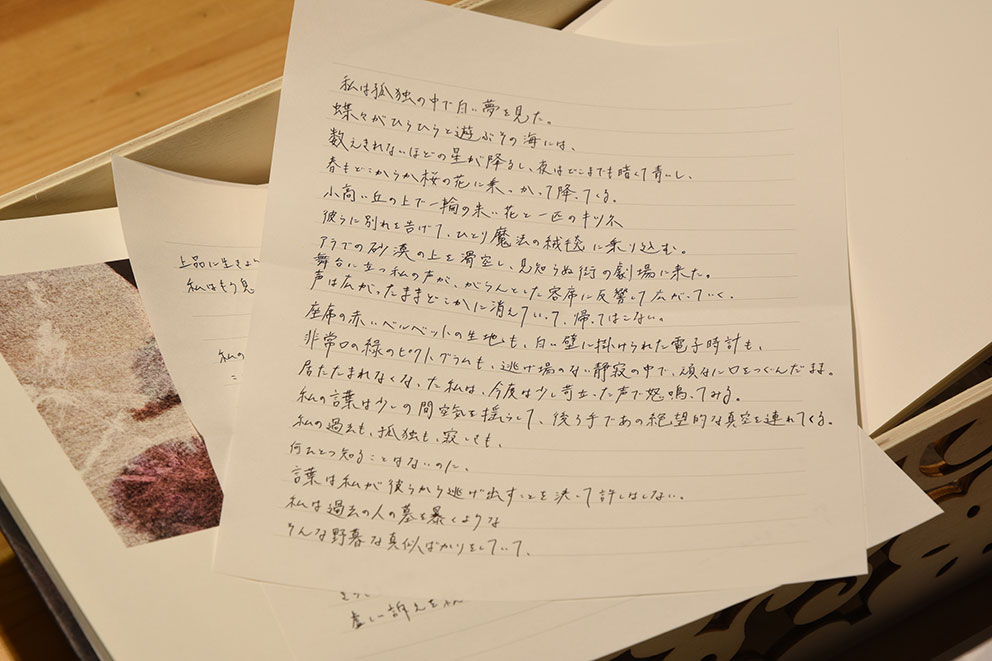 私は孤独の中で白い夢を見た。
蝶々がひらひらと遊ぶその海には、
数えきれないほどの星が降るし、夜はどこまでも暗くて青いし、
春もどこからか桜の花に乗っかって降ってくる。
小高い丘の上で一輪の朱い花と一匹のキツネ
彼らに別れを告げて、ひとり魔法の絨毯に乗り込む。
アラブの砂漠の上を滑空し、見知らぬ街の劇場に来た。
舞台に立つ私の声が、がらんとした客席に反響して広がっていく。
声は広がったままどこかに消えていって、帰ってはこない。
座席の赤いベルベットの生地も、白い壁に掛けられた電子時計も、
非常口の緑のピクトグラムも、逃げ場のない静寂の中で、頑なに口をつぐんだまま。
居たたまれなくなった私は、今度は少し苛立った声で怒鳴ってみる。
私の言葉は少しの間空気を揺らして、後ろ手であの絶望的な真空を連れてくる。
私の過去も、孤独も、寂しさも、
何ひとつ知ることはないのに、
言葉は私が彼らから逃げ出すことを決して許しはしない。
私は過去の人の墓を暴くような
そんな野暮な真似ばかりをしていて、
上品に生きよ
私はもう見
私の
虚しい訴えを